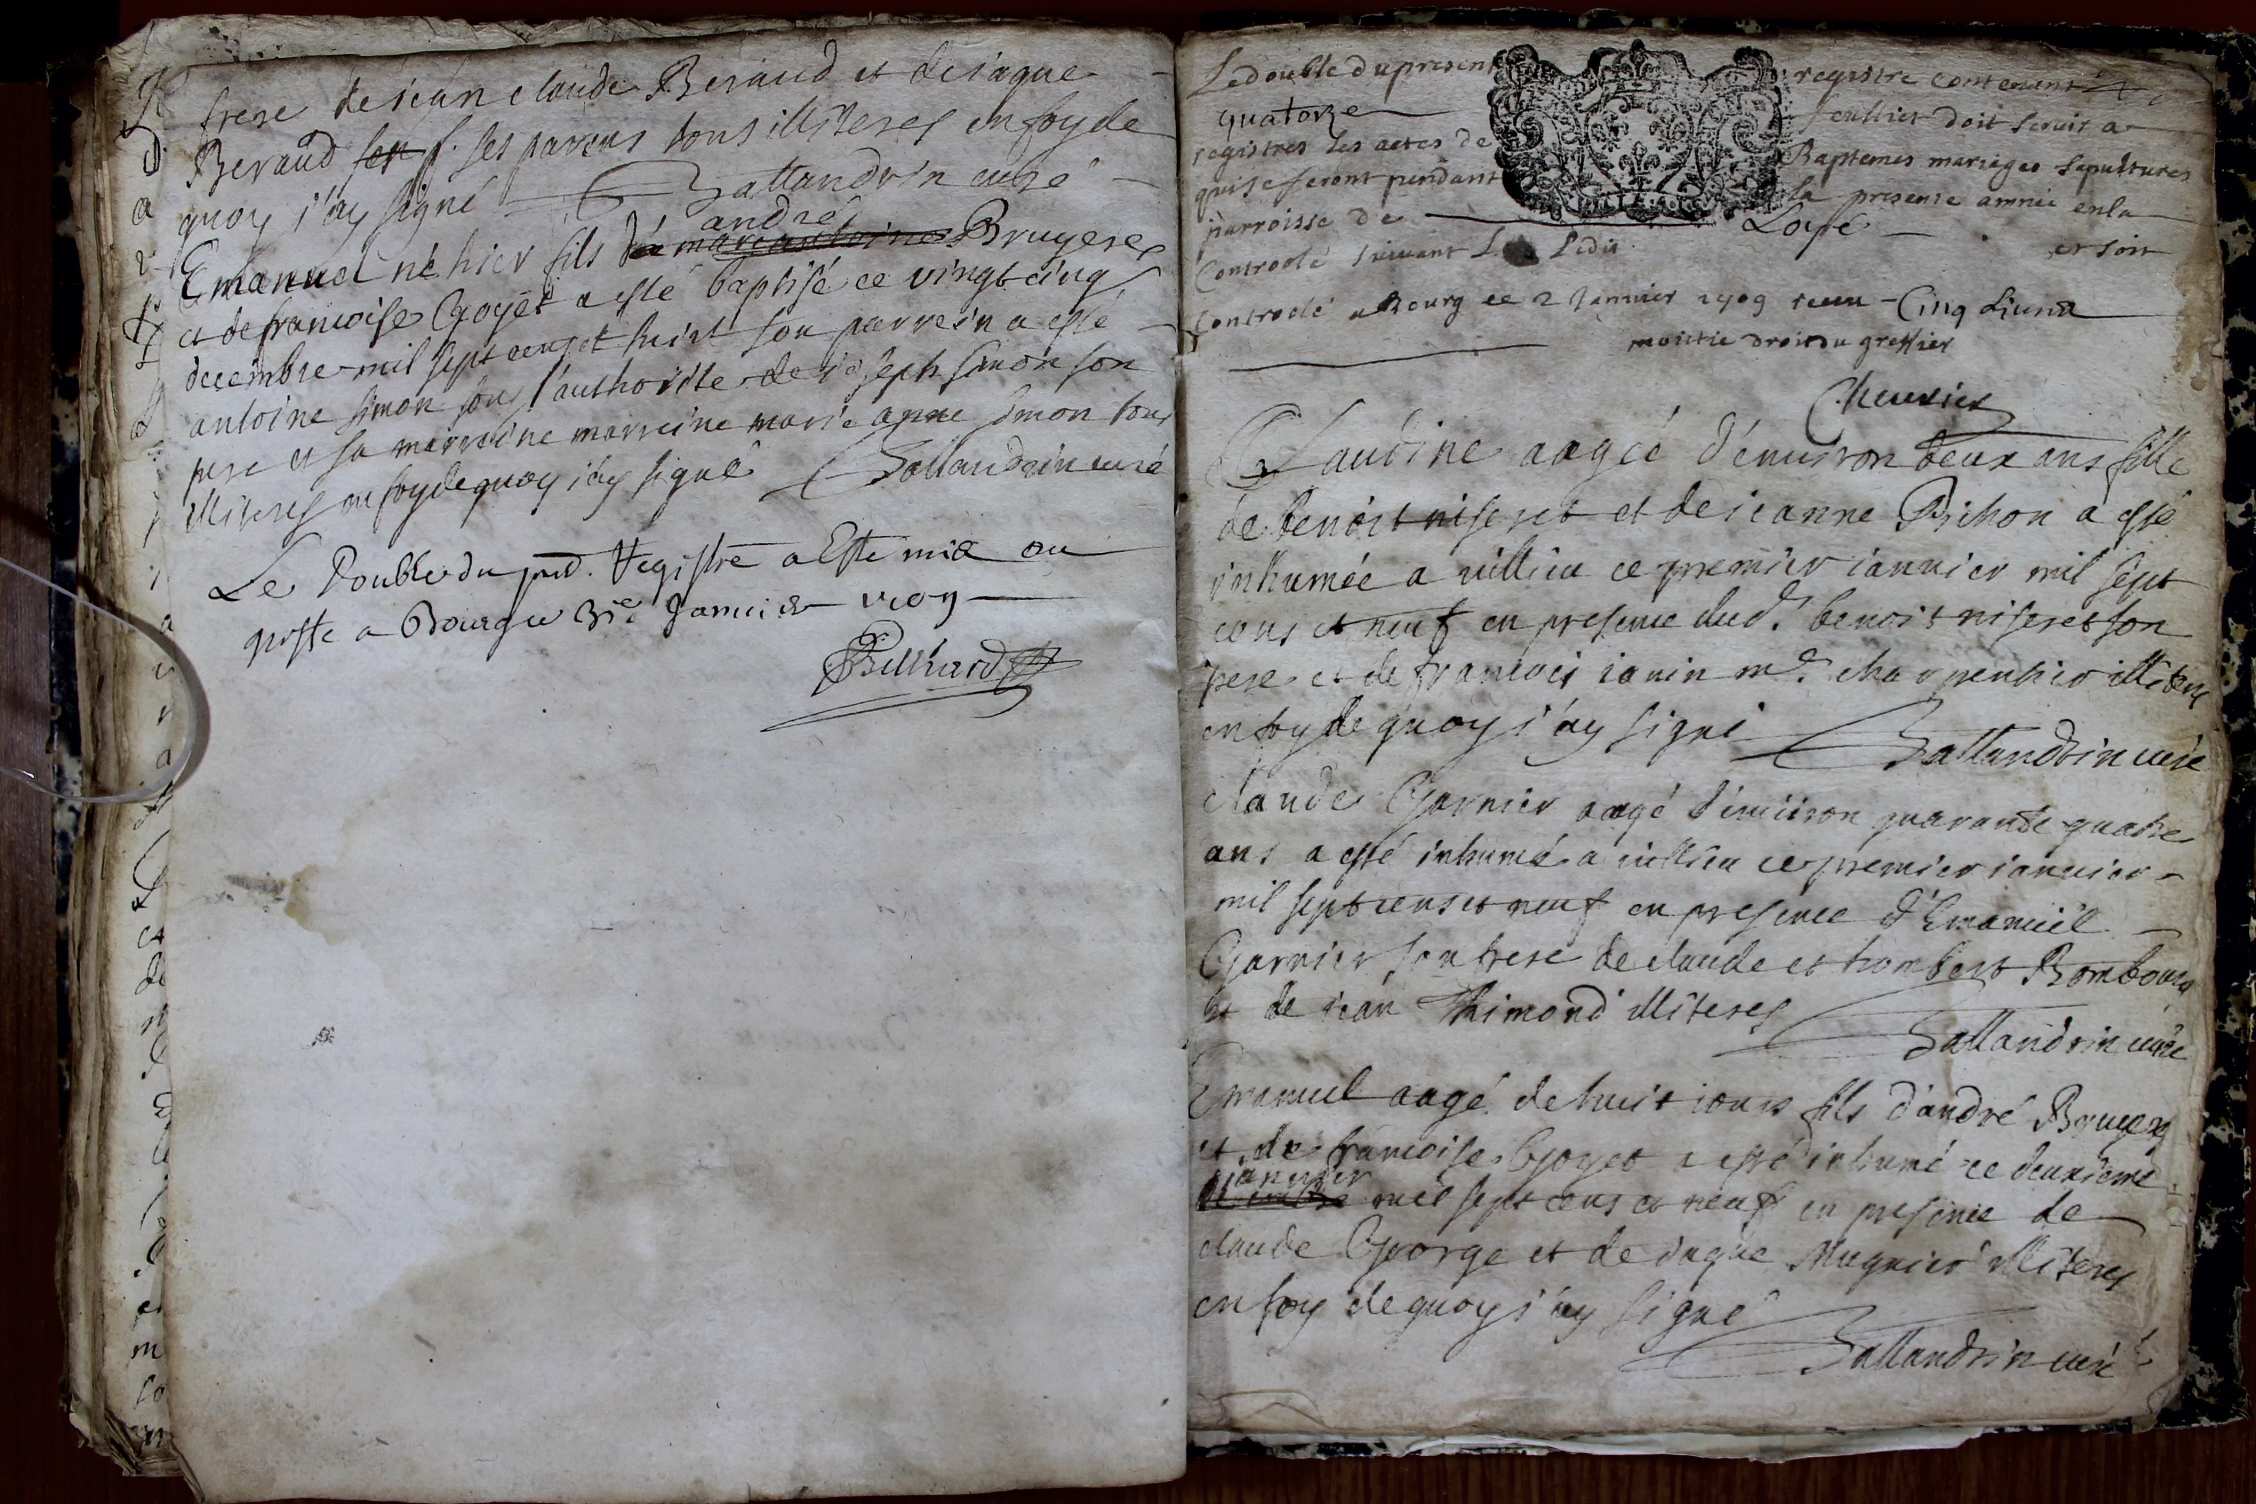 frere de jean claude Beraud et de jaque
Beraud ses parens tous illiteres en foy de
quoy j'ay signé Sallandrin curé
andré
Emanuel né hier fils de marc antoine Bruyeres
et de francoise Goyet a esté baptisé ce vingt cinq
decembre mil sept cens et huict son parrein a esté
antoine simon sous l'authorite de joseph simon son
pere et sa marreine marreine marie anne simon tous
illiteres en foy de quoy j'ay signé Sallandrin curé
Le Double du pnt. Registre a Esté mis au
greffe a Bourg ce 31e Janvier 1709
Le double du present registre contenant
quatorze feuillet doit servir a
registrer les actes de Baptemes mariages sepultures
qui se feront pendant la presente année en la
parroisse de Loyé et soit
Controolé suivant Ledit
Controolé a Bourg ce 2 Janvier 1709 receu Cinq Livres
moitie droit du greffier
Chevrier
Claudine aagée d'environ deux ans fille
de benoist niseret et de jeanne Bichon a esté
inhumée a villieu ce premier janvier mil sept
cens et neuf en presence dud. benoist niseret son
pere et de francois janin me. charpentier illiteres
en foy de quoy j'ay signé Sallandrin curé
claude Garnier aagé d'environ quarante quatre
ans a esté inhumé a villieu ce premier janvier
mil sept cens et neuf en presence d'Emanuel
Garnier son frere de claude et humbert Rombourg
et de jean Thimond illiteres
Sallandrin curé
Emanuel aagé de huict jours fils d'andré Bruyeres
et de francoise Goyet a esté inhumé ce deuxieme
janvier
mil sept cens et neuf en presence de
claude George et de jaque Mugnier illiteres
en foy de quoy j'ay signé
Sallandrin curé